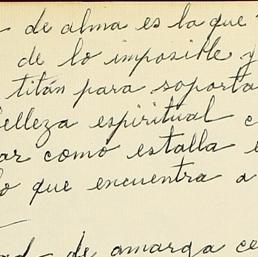 - de alma es la que
de lo imposible y
titán para soporta
elleza espiritual c
ar como estalla e
o que encuentra a
ad - de amarga ce